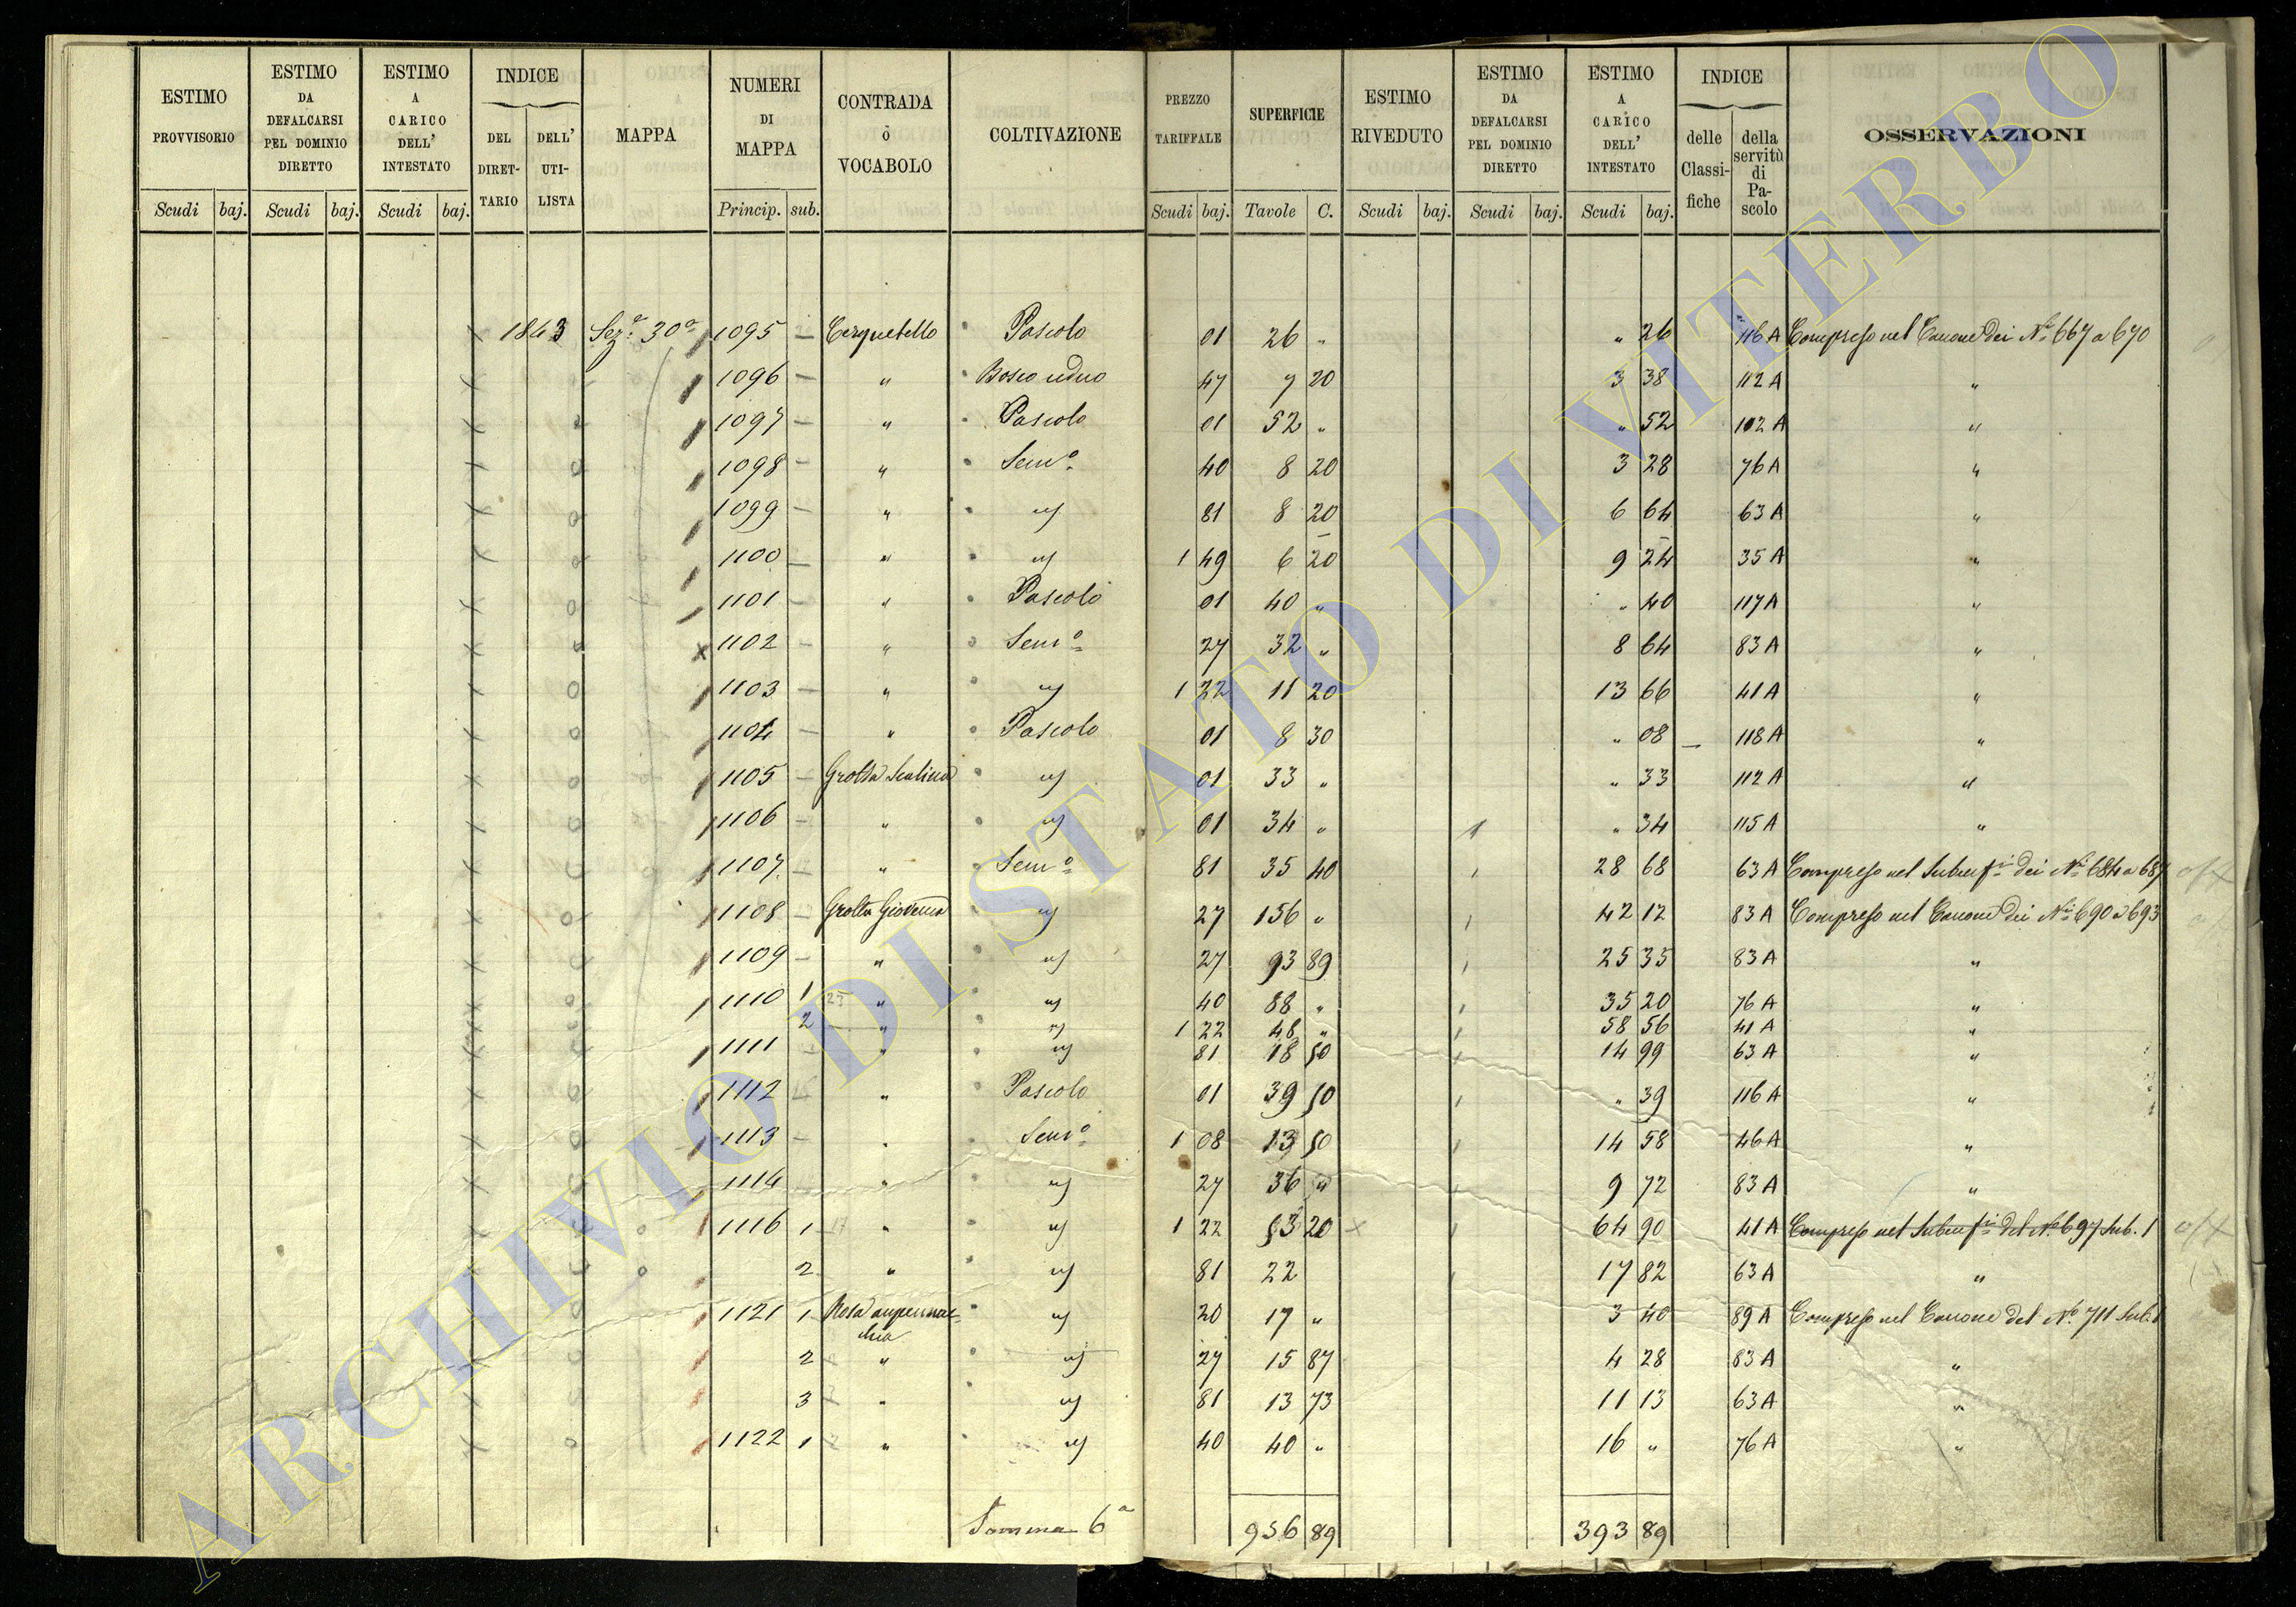 ESTIMO PROVVISORIO | ESTIMO DA DEFALCARSI PEL DOMINIO DIRETTO | ESTIMO A CARICO DELL' INTESTATO | INDICE DEL DIRETTARIO | INDICE DELL' UTILISTA | MAPPA | NUMERI DI MAPPA | CONTRADA ò VOCABOLO | COLTIVAZIONE | PREZZO TARIFFALE | SUPERFICIE | ESTIMO RIVEDUTO | ESTIMO DA DEFALCARSI PEL DOMINIO DIRETTO | ESTIMO A CARICO DELL' INTESTATO | INDICE delle Classifiche | INDICE della servitù di Pascolo | OSSERVAZIONI
Scudi baj. Scudi baj. Scudi baj. Princip. sub. Scudi baj. Tavole C. Scudi baj. Scudi baj. Scudi baj.
1843 Sez.e 30a 1095 — Cerquetello Pascolo 01 26 " " 26 116 A Compreso nel Canone dei Ni 667 a 670
1096 — " Bosco ceduo 47 7 20 3 38 112 A "
1097 — " Pascolo 01 52 " " 52 112 A "
1098 — " Semo 40 8 20 3 28 76 A "
1099 — " " 81 8 20 6 64 63 A "
1100 — " " 1 49 6 20 9 24 35 A "
1101 — " Pascolo 01 40 " " 40 117 A "
1102 — " Semo 27 32 " 8 64 83 A "
1103 — " " 1 22 11 20 13 66 41 A "
1104 — " Pascolo 01 8 30 " 08 118 A "
1105 — Grotta Scalina " 01 33 " " 33 112 A "
1106 — " " 01 34 " " 34 115 A "
1107 — " Semo 81 35 40 28 68 63 A Compreso nel dei Ni 684 a 687
1108 — Grotta " 27 156 " 42 12 83 A Compreso nel Canone dei Ni 690 a 693
1109 — " " 27 93 89 25 35 83 A "
1110 1 " " 40 88 " 35 20 76 A "
2 " " 1 22 48 " 58 56 41 A "
1111 — " " 81 18 50 14 99 63 A "
1112 — " Pascolo 01 39 50 " 39 116 A "
1113 — " Semo 1 08 13 50 14 58 46 A "
1114 — " " 27 36 " 9 72 83 A "
1116 1 " " 1 22 53 20 64 90 41 A Compreso nel del No 697 sub. 1
2 " " 81 22 17 82 63 A "
1121 1 " 20 17 " 3 40 89 A Compreso nel Canone del No 711 sub. 1
2 " " 27 15 87 4 28 83 A "
3 " " 81 13 73 11 13 63 A "
1122 1 " " 40 40 " 16 " 76 A "
Somma 6a 956 89 393 89
ARCHIVIO DI STATO DI VITERBO